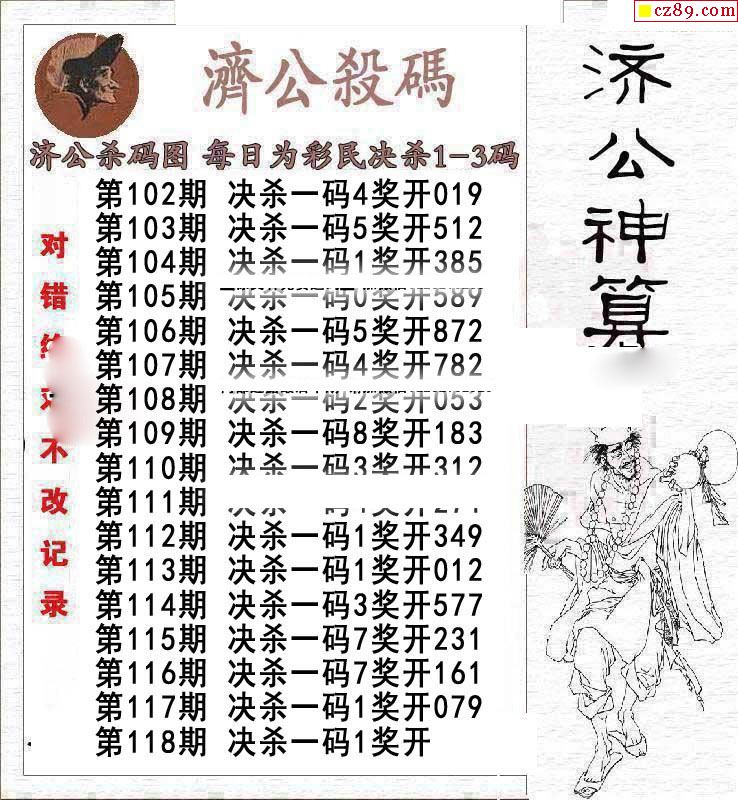 cz89.com
濟公殺碼
济公杀码图 每日为彩民决杀1-3码
第102期 决杀一码4奖开019
第103期 决杀一码5奖开512
第104期 决杀一码1奖开385
第105期 决杀一码0奖开589
第106期 决杀一码5奖开872
第107期 决杀一码4奖开782
第108期 决杀一码2奖开053
第109期 决杀一码8奖开183
第110期 决杀一码3奖开312
第111期
第112期 决杀一码1奖开349
第113期 决杀一码1奖开012
第114期 决杀一码3奖开577
第115期 决杀一码7奖开231
第116期 决杀一码7奖开161
第117期 决杀一码1奖开079
第118期 决杀一码1奖开
对错
不改记录
济公神算